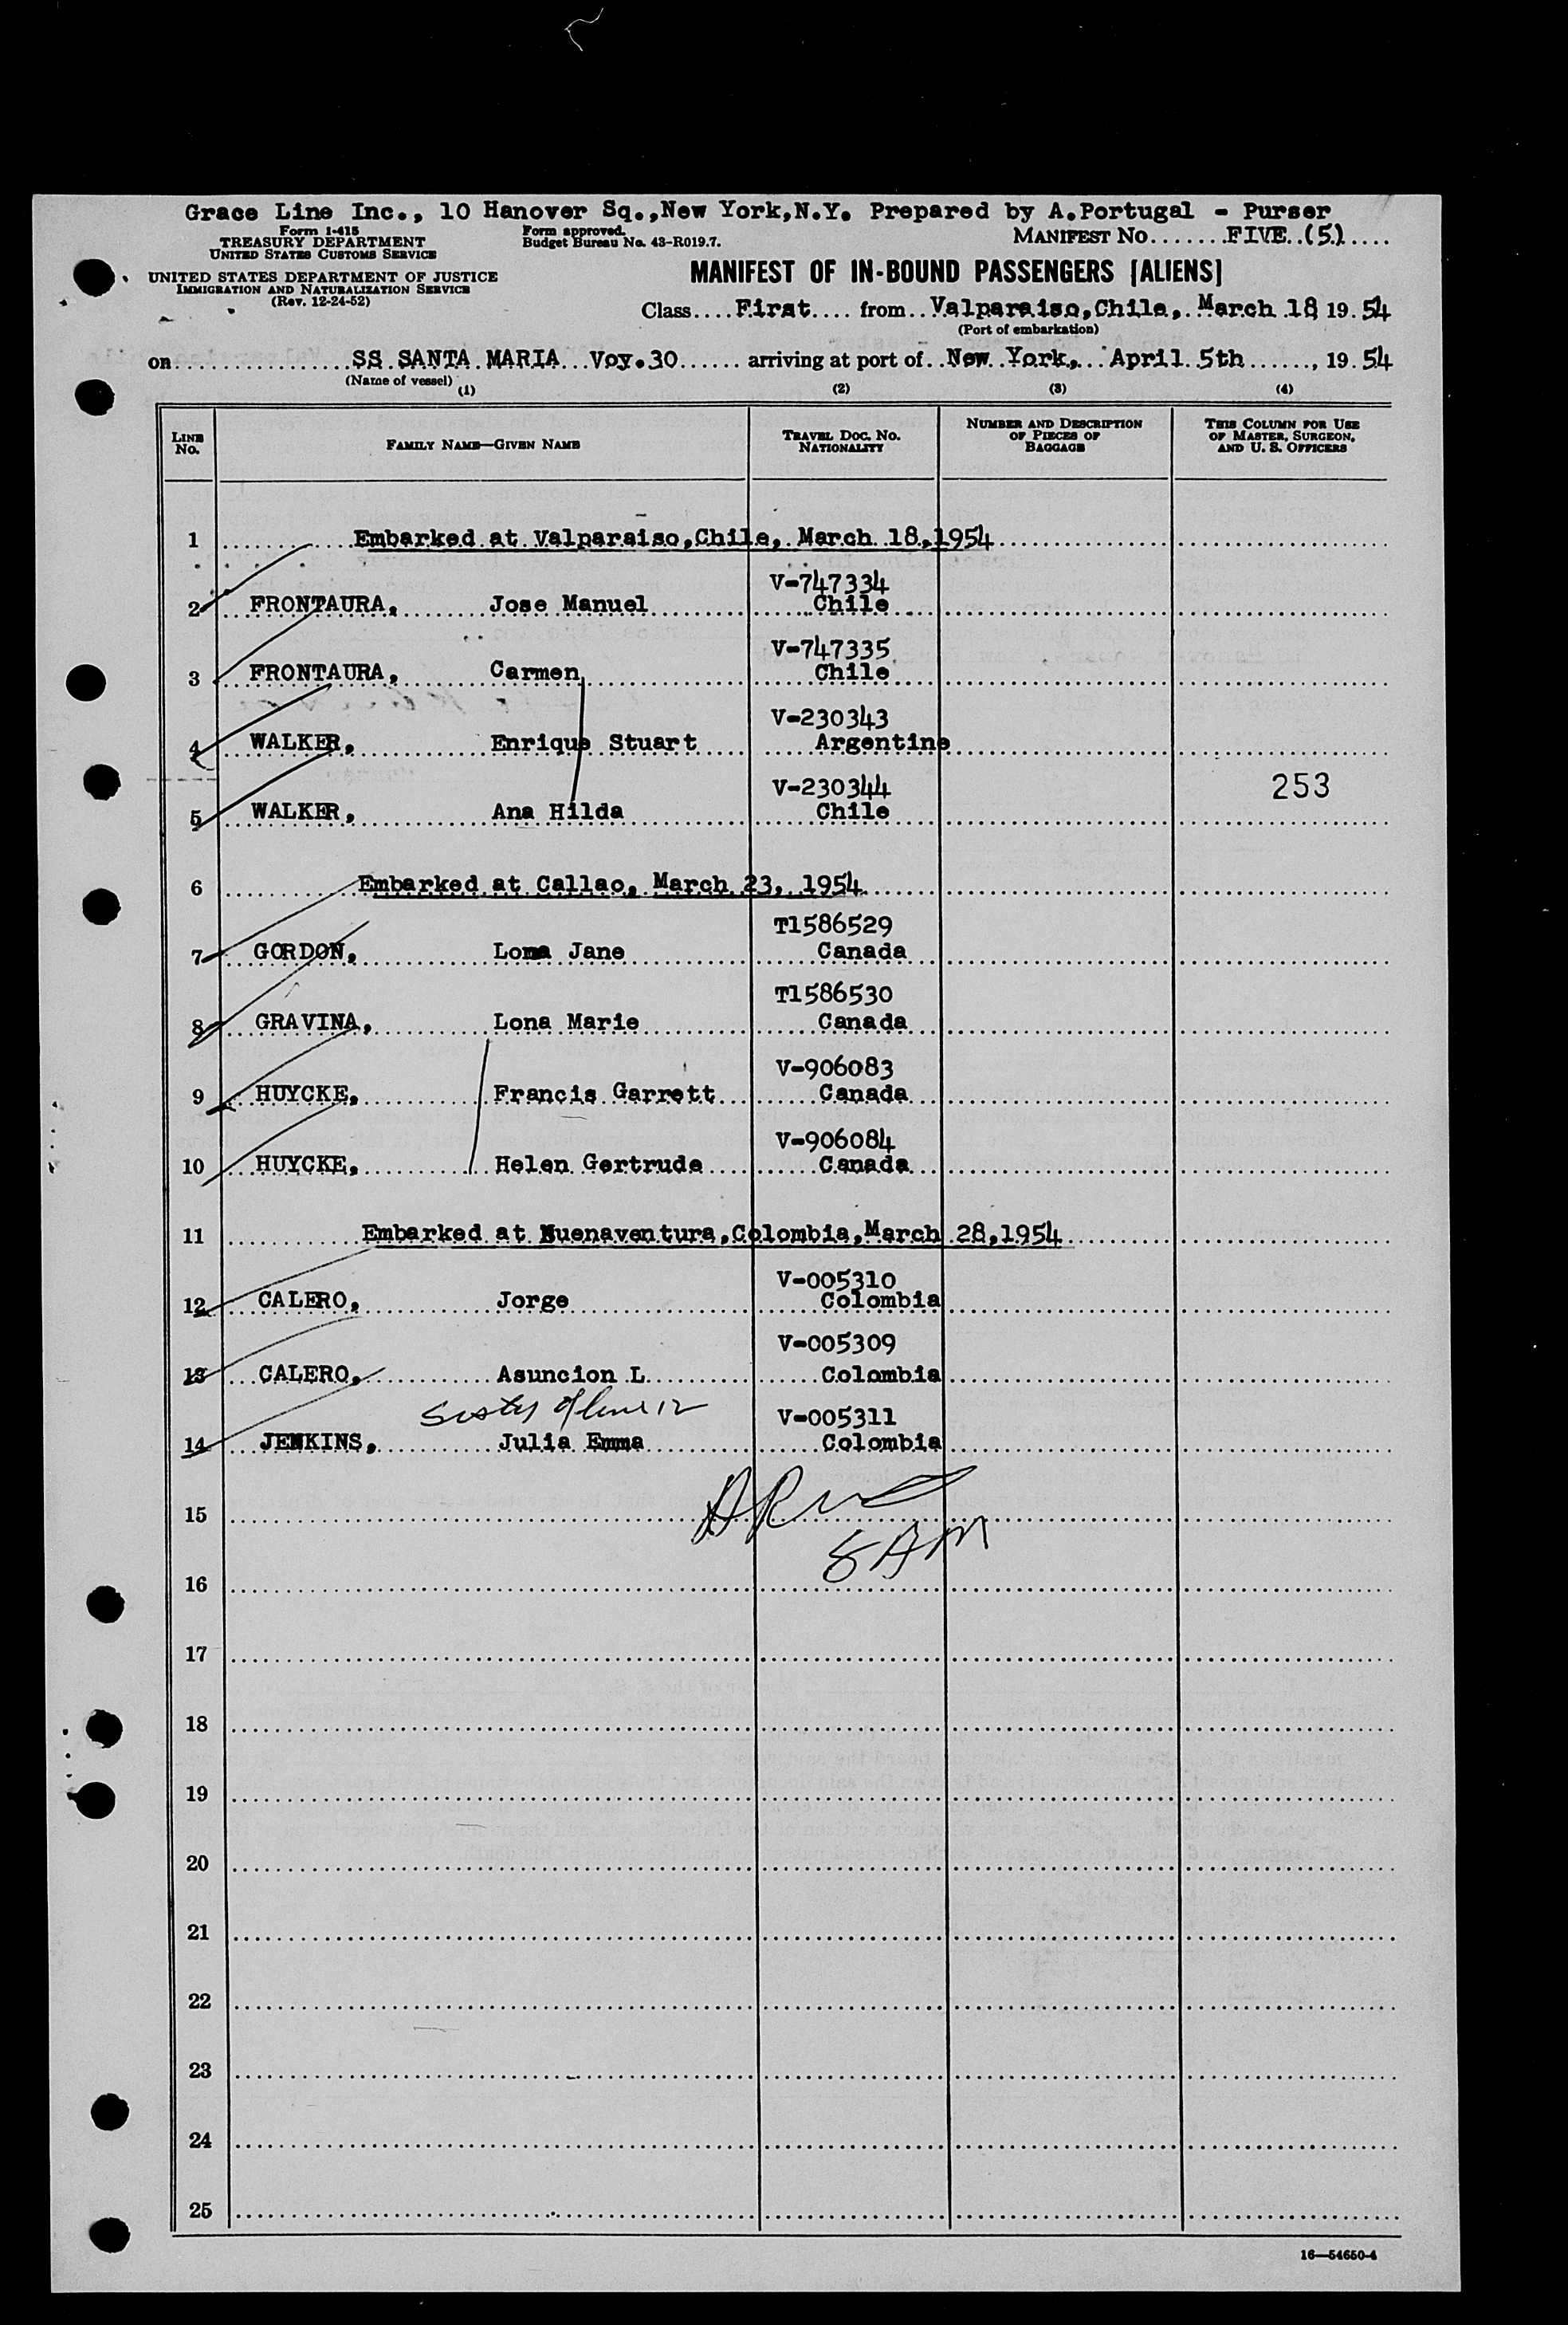 Grace Line Inc., 10 Hanover Sq.,New York,N.Y. Prepared by A.Portugal - Purser
Form I-415
TREASURY DEPARTMENT
UNITED STATES CUSTOMS SERVICE
Form approved.
Budget Bureau No. 43-R019.7.
MANIFEST NO.......FIVE..(5).....
UNITED STATES DEPARTMENT OF JUSTICE
IMMIGRATION AND NATURALIZATION SERVICE
(Rev. 12-24-52)
MANIFEST OF IN-BOUND PASSENGERS [ALIENS]
Class....First.... from..Valparaiso,Chile,.March 18 19.54
(Port of embarkation)
on.................SS SANTA MARIA...Voy.30...... arriving at port of..New York,..April 5th......, 19.54
(Name of vessel)
(1) (2) (3) (4)
LINE NO.
FAMILY NAME—GIVEN NAME
TRAVEL DOC. NO. NATIONALITY
NUMBER AND DESCRIPTION OF PIECES OF BAGGAGE
THIS COLUMN FOR USE OF MASTER, SURGEON, AND U. S. OFFICERS
1 Embarked at Valparaiso,Chile, March 18,1954
V-747334
2 FRONTAURA, Jose Manuel Chile
V-747335
3 FRONTAURA, Carmen Chile
V-230343
4 WALKER, Enrique Stuart Argentine
V-230344 253
5 WALKER, Ana Hilda Chile
6 Embarked at Callao, March 23, 1954
T1586529
7 GORDON, Lona Jane Canada
T1586530
8 GRAVINA, Lona Marie Canada
V-906083
9 HUYCKE, Francis Garrett Canada
V-906084
10 HUYCKE, Helen Gertrude Canada
11 Embarked at Buenaventura,Colombia,March 28,1954
V-005310
12 CALERO, Jorge Colombia
V-005309
13 CALERO, Asuncion L Colombia
Sister of line 12 V-005311
14 JENKINS, Julia Emma Colombia
15
8AM
16
17
18
19
20
21
22
23
24
25
16—54650-4